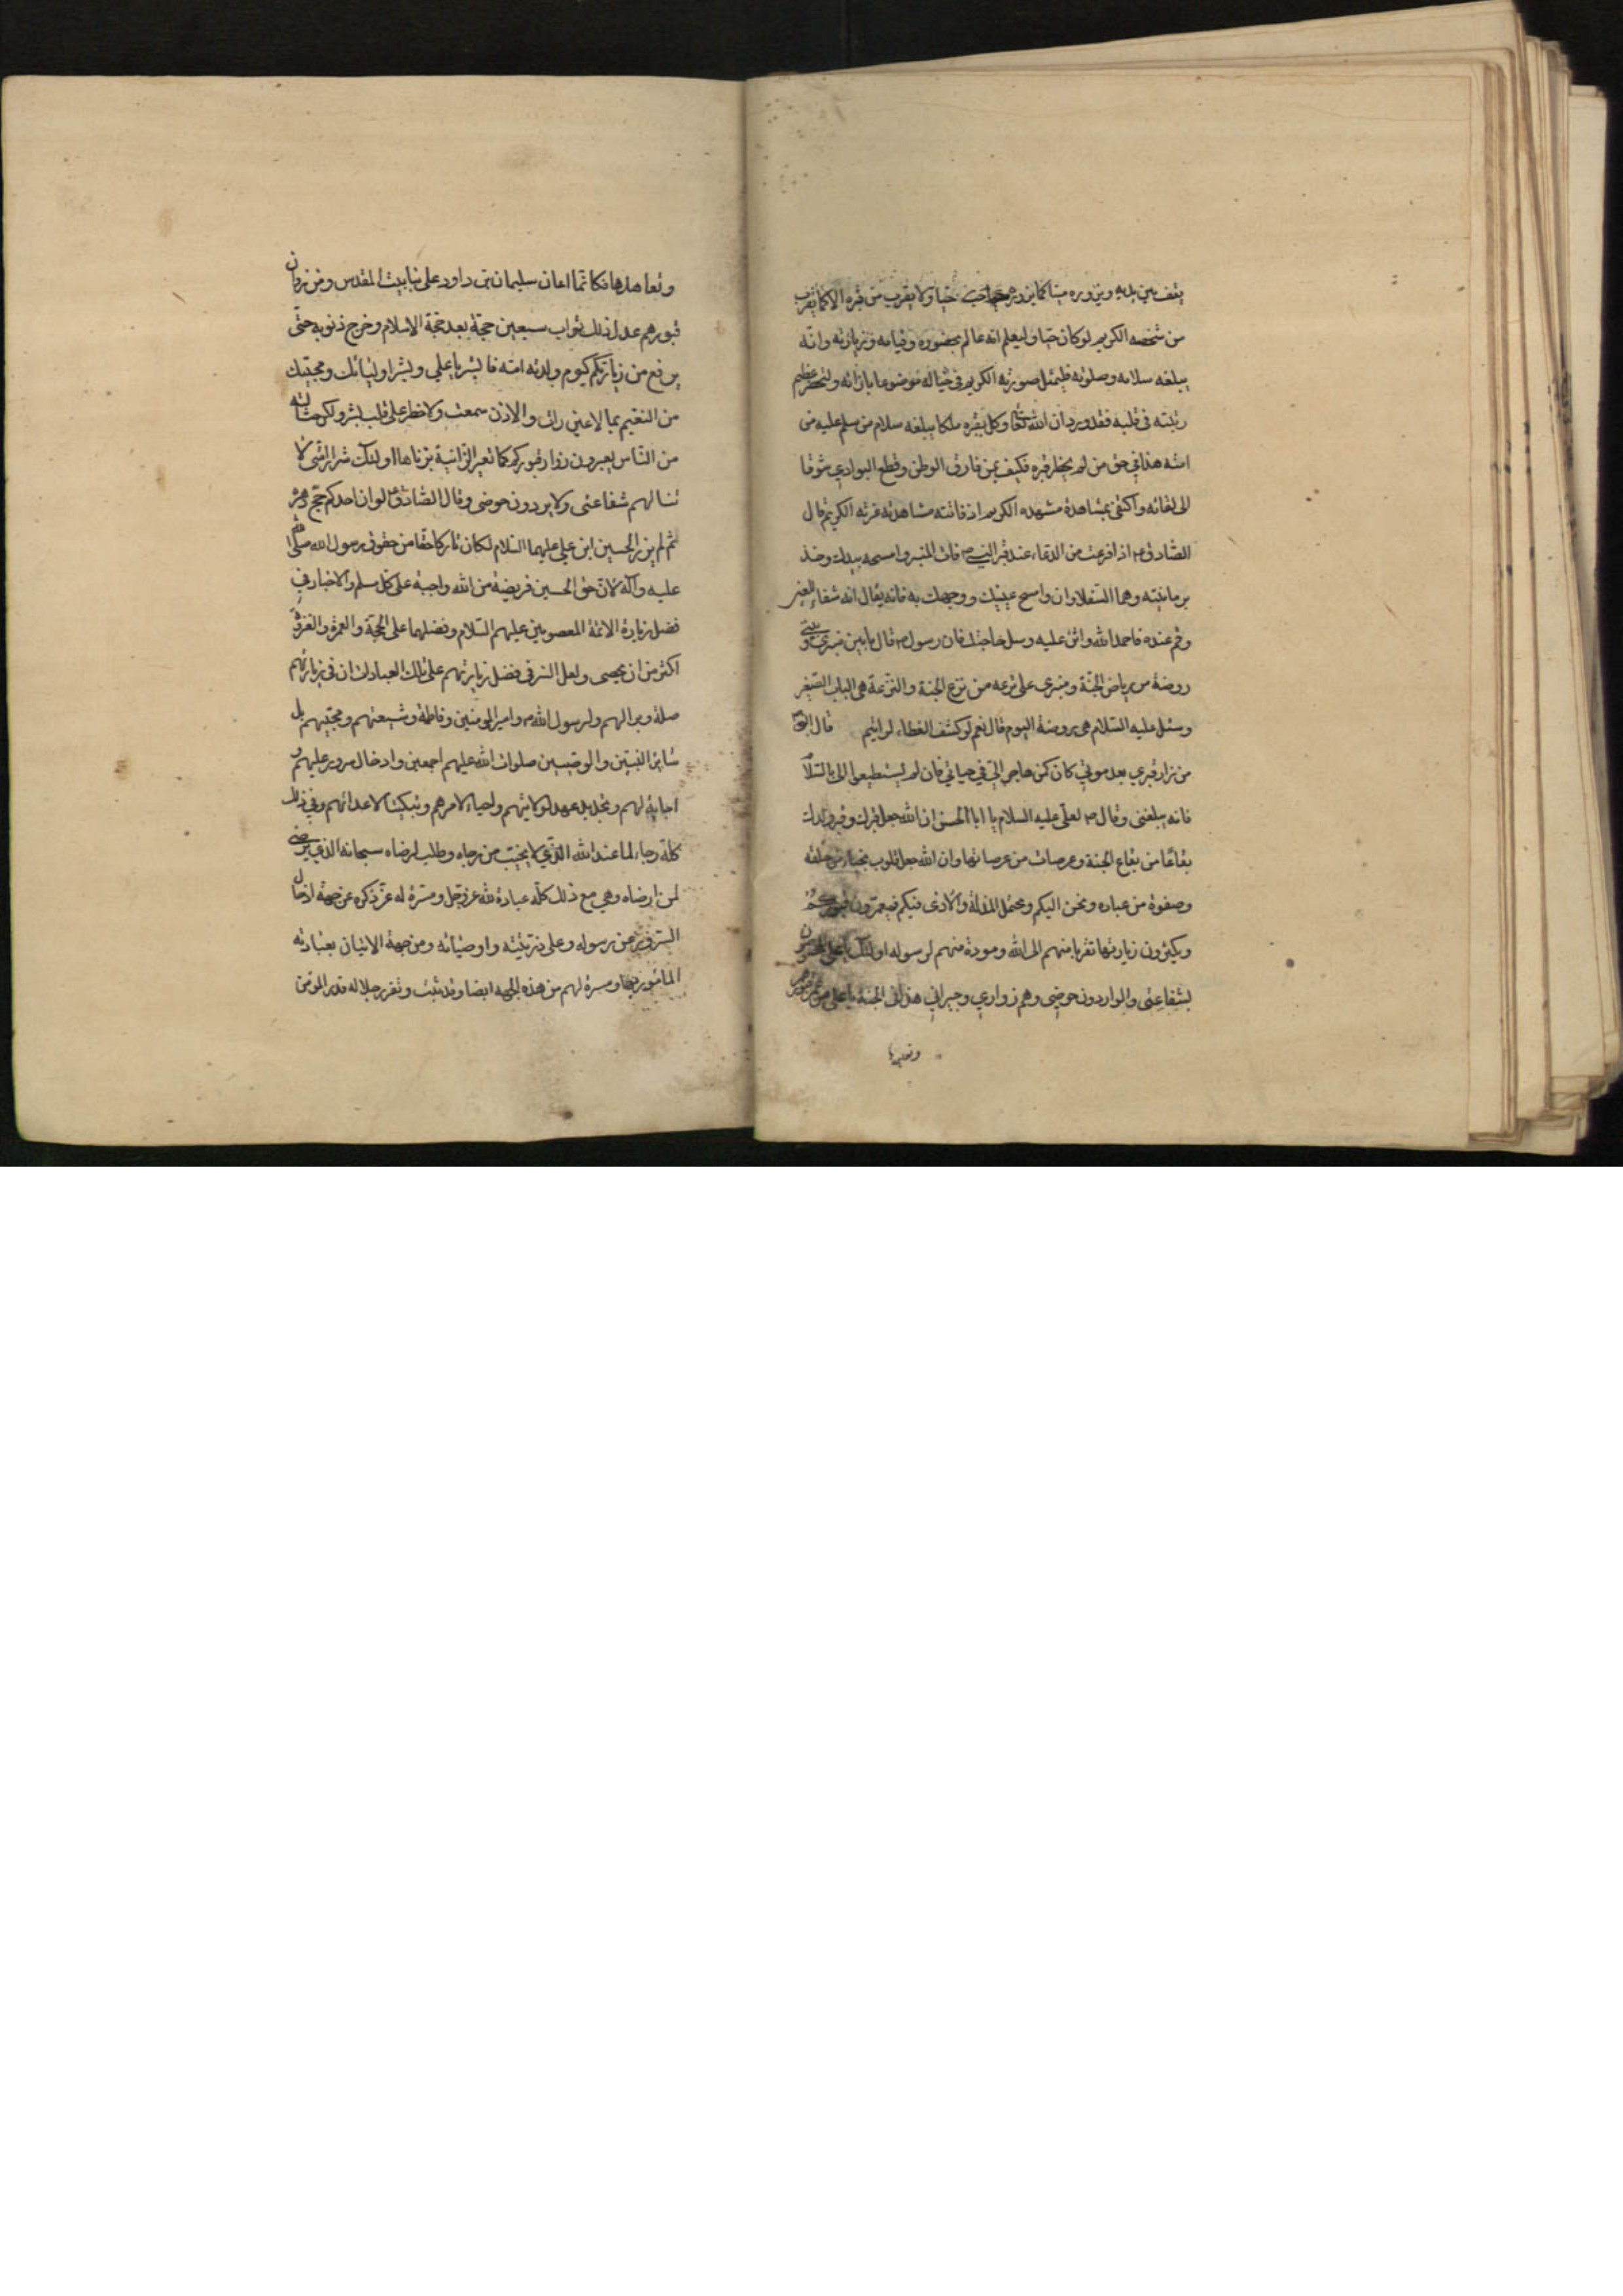 يقف بين يديه ويزوره ميتا كما يزوره حيا ولا يقرب من قبره الا كما يقرب
من شخصه الكريم لو كان حيا وليعلم انه عالم بحضوره وقيامه وزيارته وانه
يبلغه سلامه وصلوته فليمثل صورته الكريم في خياله موضوعا بازائه وليحضر عظيم
رتبته في قلبه فقد ورد ان الله تعالى وكل بقبره ملكا يبلغه سلام من سلم عليه من
امته هذا في حق من لم يحضر قبره فكيف بمن فارق الوطن وقطع البوادي شوقا
الى لقائه واكتفى بمشاهدة مشهده الكريم اذ فاتته مشاهدته غرته الكريم قال
الصادق ع اذا فرغت من الدعاء عند قبر النبي ص فات المنبر وامسحه بيدك وخذ
برمانتيه وهما السفلاوان وامسح عينيك ووجهك به فانه يقال انه شفاء العين
وقم عنده فاحمد الله واثن عليه وسل حاجتك فان رسول ص قال ما بين منبري وبيتي
روضة من رياض الجنة ومنبري على ترعه من ترع الجنة والترعة هي الباب الصغير
وسئل عليه السلام هي روضة اليوم قال نعم لو كشف الغطاء لرايتم قال النبي ص
من زار قبري بعد موتي كان كمن هاجر الي في حياتي فان لم يستطيعوا الى بالسلام
فانه يبلغني وقال ص لعلي عليه السلام يا ابا الحسن ان الله جعل قبرك وقبر ولدك
بقاعا من بقاع الجنة وعرصات من عرصاتها وان الله جعل قلوب نجباء من خلقه
وصفوة من عباده وتحن اليكم وتحتمل المذلة والاذى فيكم فيعمرون قبوركم
ويكثرون زيارتها تقربا منهم الى الله ومودة منهم لرسوله اولئك يا علي المخصوصون
بشفاعتي والواردون حوضي وهم زواري وجيراني غدا في الجنة يا علي من عمر قبورهم
وتعاهدها
وتعاهدها فكانما اعان سليمان بن داود على بنا بيت المقدس ومن زار
قبورهم عدل ذلك ثواب سبعين حجة بعد حجة الاسلام وخرج ذنوبه حتى
يرجع من زيارتكم كيوم ولدته امه فابشر يا علي وبشر اوليائك ومحبيك
من النعيم بما لا عين رات ولا اذن سمعت ولا خطر على قلب بشر ولكن حثالة
من الناس يعيرون زوار قبوركم كما تعير الزانية بزناها اولئك شرار امتي لا
تنالهم شفاعتي ولا يردون حوضي وقال الصادق ع لو ان احدكم حج دهره
ثم لم يزر الحسين ابن علي عليهما السلام لكان تاركا حقا من حقوق رسول الله صلى الله
عليه وآله لان حق الحسين فريضة من الله واجبة على كل مسلم والاخبار في
فضل زيارة الائمة المعصومين عليهم السلام وفضلها على الحجة والعمرة والغزوة
اكثر من ان يحصى ولعل السر في فضل زيارتهم على تلك العبادات ان في زيارتهم
صلة وبرا لهم ولرسول الله ص وامير المومنين وفاطمة وشيعتهم ومحبيهم بل
سائر النبيين والوصيين صلوات الله عليهم اجمعين وادخال سرور عليهم و
اجابة لهم وتجديد عهد لولايتهم واحياء لامرهم وتبكيتا لاعدائهم وفي ذلك
كله رجاء لما عند الله الذي لا يخيب من رجاه وطلب لرضاه سبحانه الذي يرضى
لمن ارضاه وهي مع ذلك كله عبادة لله عز وجل ومسرة له عز ذكره عن جهة ادخال
السرور من رسوله وعلى ذريته واوصيائه ومن جهة الاتيان بعبادته
المامور بها ومسرة لهم من هذه الجهه ايضا وقد ثبت وتقرر جلاله قدر المومن